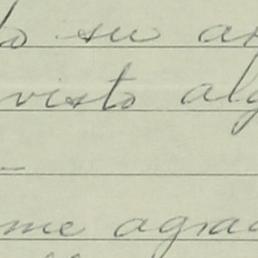 to su a
visto alg
me agrad